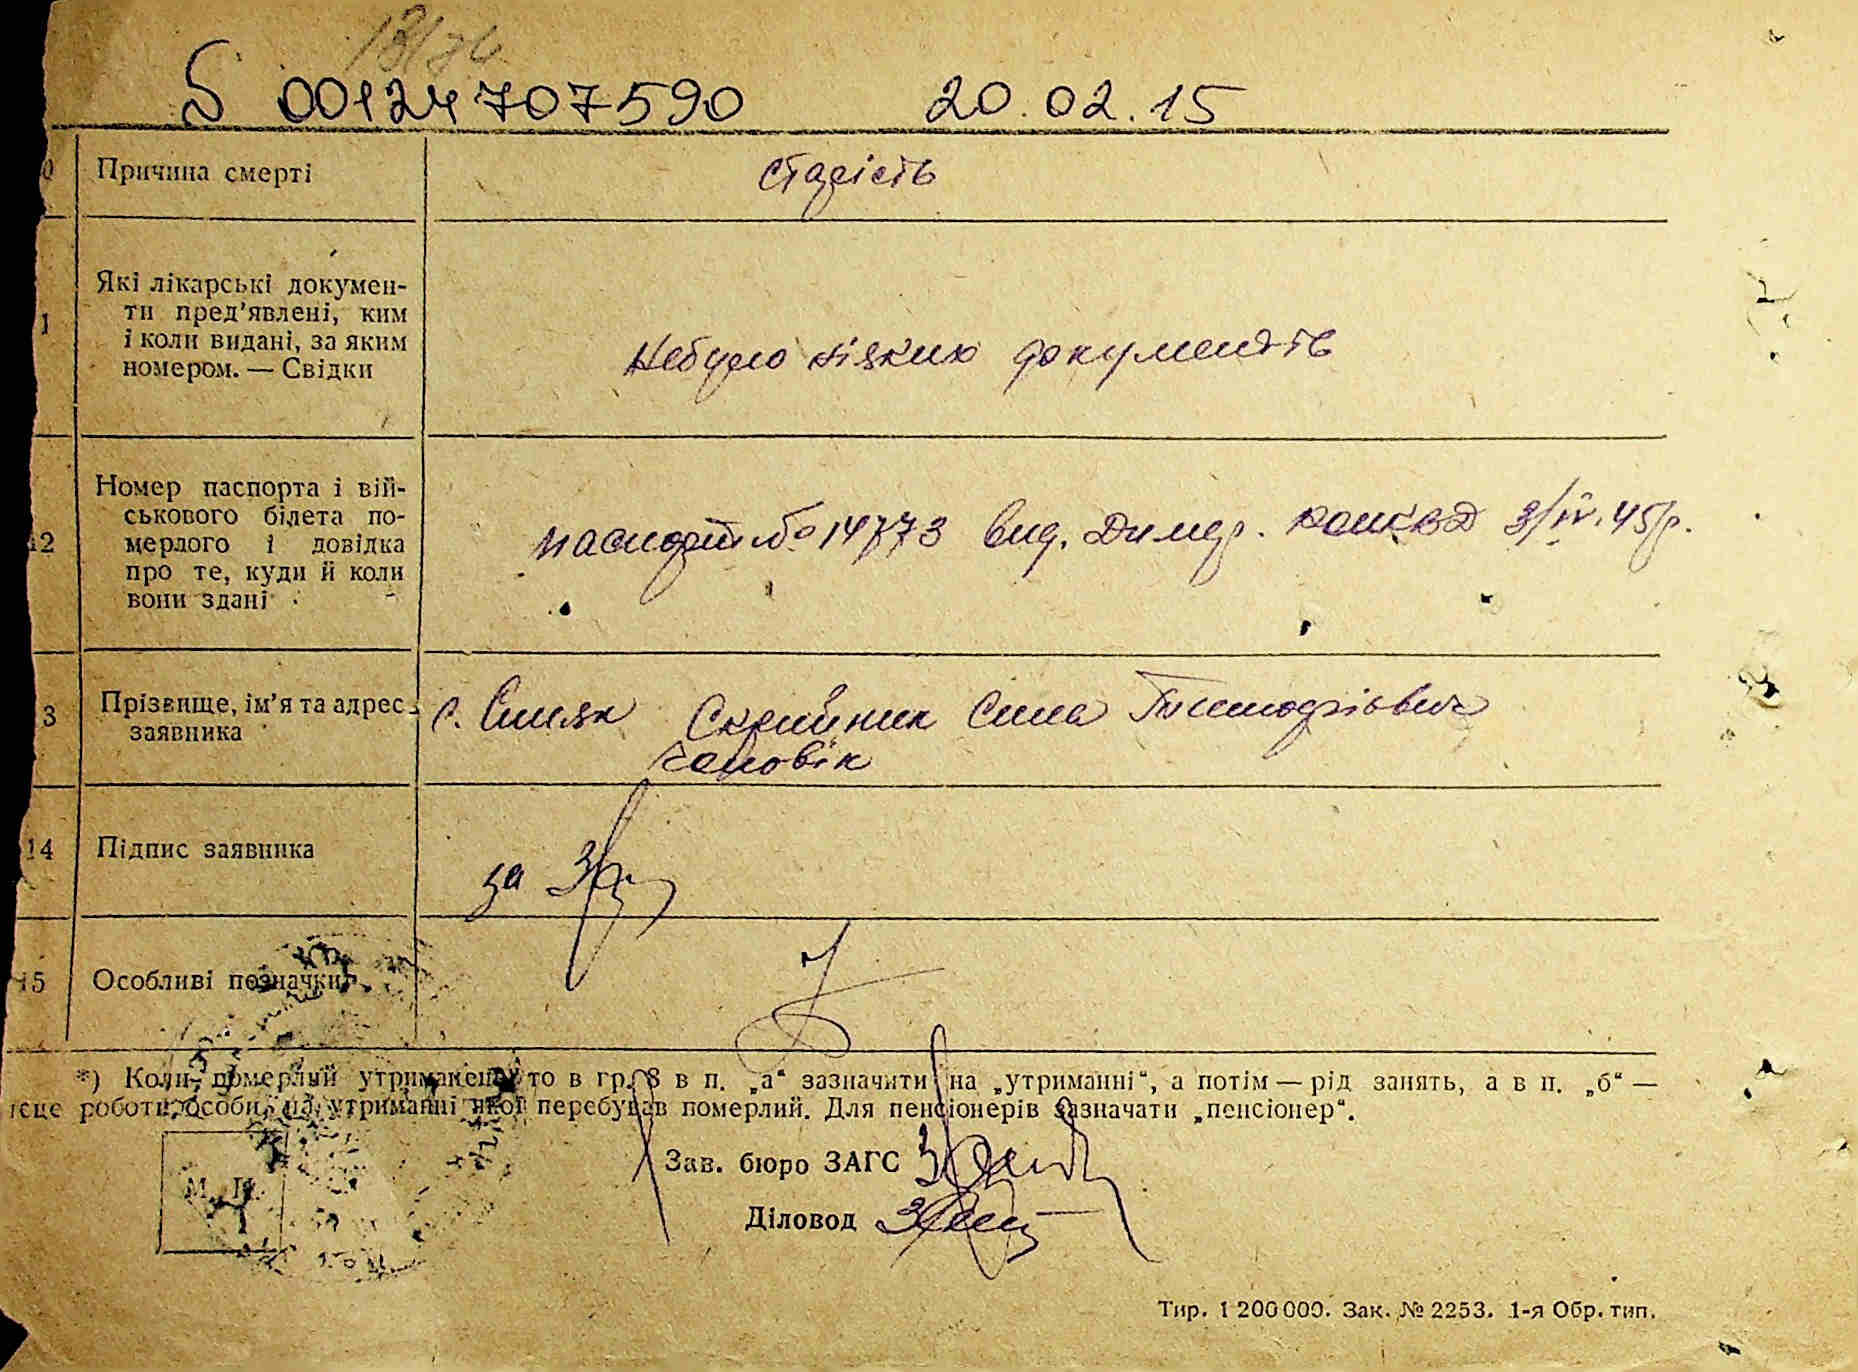 13/74
S 00124707590 20.02.15
Причина смерті
старість
1
Які лікарські докумен-
ти пред'явлені, ким
і коли видані, за яким
номером. — Свідки
Небуло ніяких документів
12
Номер паспорта і вій-
ськового білета по-
мерлого і довідка
про те, куди й коли
вони здані
паспорт № 14773 вид. Димер. 3/IV.45р.
3
Прізвище, ім'я та адрес
заявника
с. Синяк Скрийник Сила Тимофіович
чоловік
14
Підпис заявника
за
15
Особливі позначки
*) Коли померлий утриманець, то в гр. 8 в п. „а“ зазначити „на утриманні“, а потім — рід занять, а в п. „б“ —
ісце роботи особи, на утриманні якої перебував померлий. Для пенсіонерів зазначати „пенсіонер“.
Зав. бюро ЗАГС
М. П.
Діловод
Тир. 1 200 000. Зак. № 2253. 1-я Обр. тип.